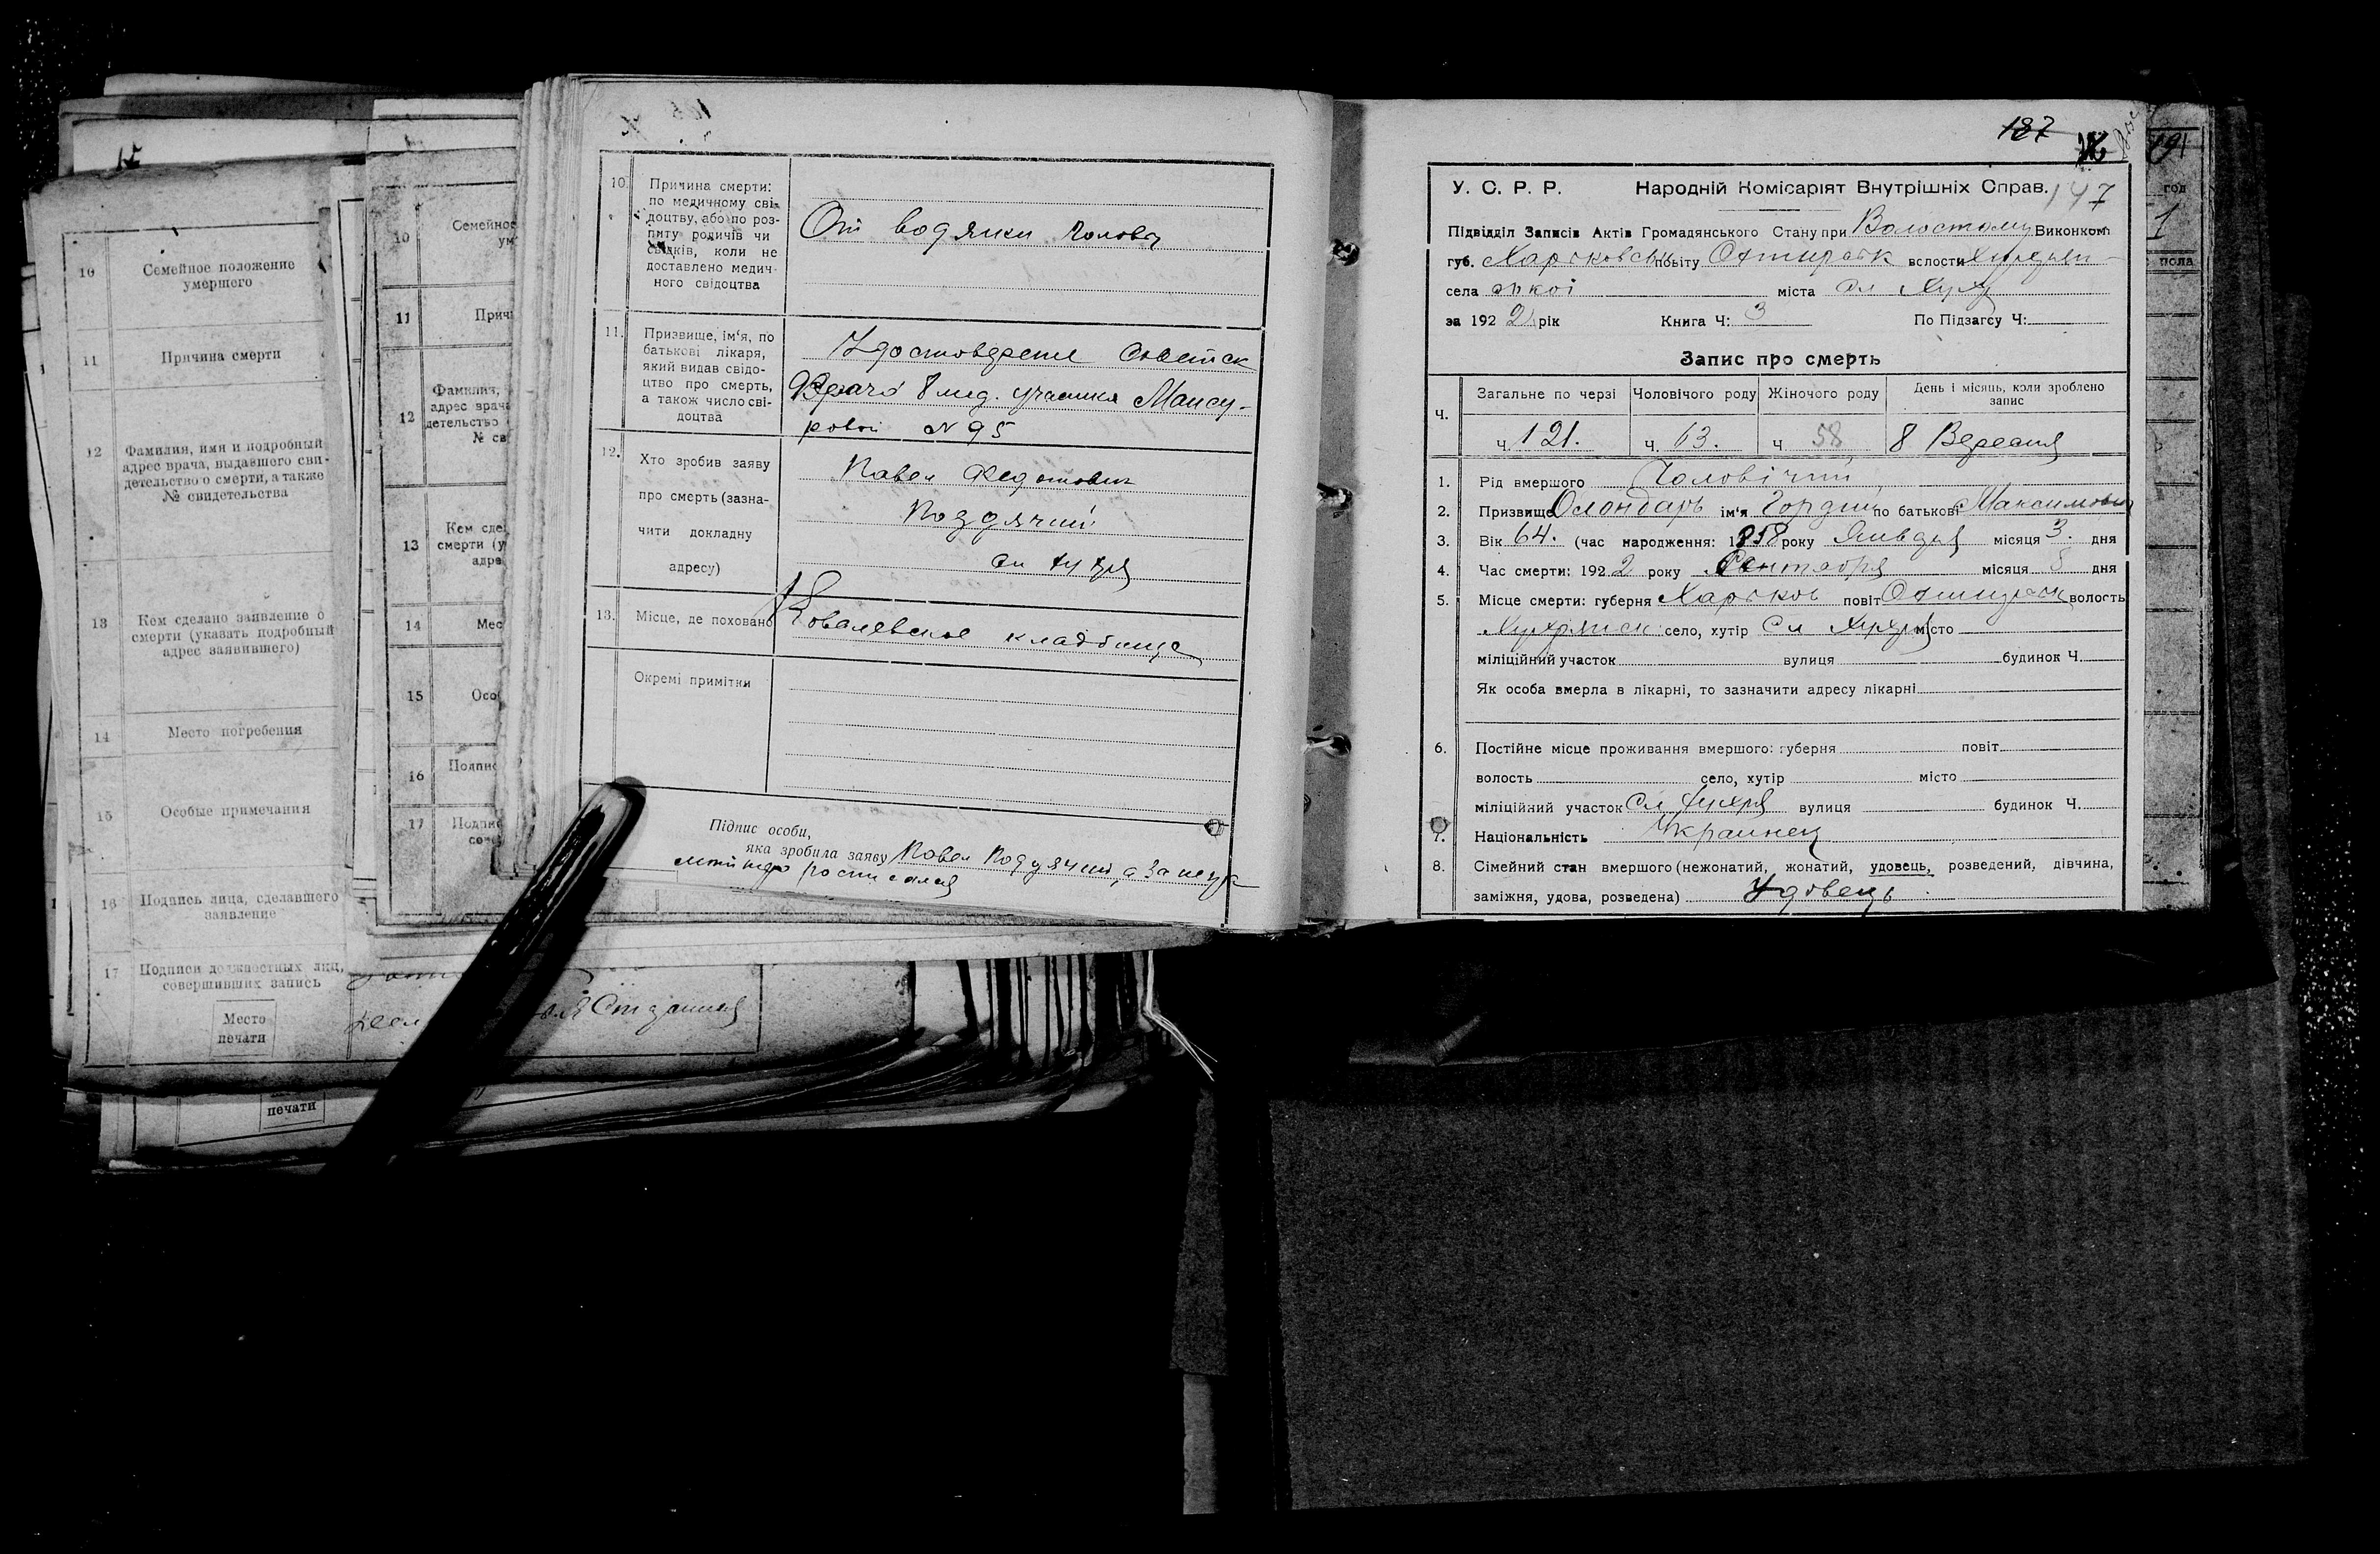 16
Семейное положение
умершего
11
Причина смерти
12
Фамилия, имя и подробный
адрес врача, выдавшего сви-
детельство о смерти, а также
№ свидетельства
13
Кем сделано заявление о
смерти (указать подробный
адрес заявившего)
14
Место погребения
15
Особые примечания
16
Подпись лица, сделавшего
заявление
17
Подписи должностных лиц,
совершивших запись
Место
печати
печати
10
Семейное
ум
11
Прич
12
Фамилия,
адрес врача
детельство
№ св
13
Кем сде
смерти (у
адре
14
Мес
15
Осо
16
Подпис
17
Подпи
10.
Причина смерти:
по медичному сві-
доцтву, або по роз-
питу родичів чи
свідків, коли не
доставлено медич-
ного свідоцтва
От водянки голови
11.
Призвище, ім'я, по
батькові лікаря,
який видав свідо-
цтво про смерть,
а також число сві-
доцтва
Удостоверение
8 мед. участка Мансу-
ровой N 95
12.
Хто зробив заяву
про смерть (зазна-
чити докладну
адресу)
Павел Федотович
сл Хухря
13.
Місце, де поховано
Ковалевское кладбище
Окремі примітки
Підпис особи,
яка зробила заяву Павел
росписался
187
147
У. С. Р. Р. Народній Комісаріят Внутрішніх Справ.
Підвідділ Записів Актів Громадянського Стану при Волостому Виконком
губ. Харьковськ повіту Охтирськ вслости Хухрян-
села ськоі міста Сл Хухр
за 1922 рік Книга Ч: 3 По Підзагсу Ч:
Запис про смерть
Ч. Загальне по черзі Чоловічого роду Жіночого роду День і місяць, коли зроблено запис
ч. 121. ч. 63. ч 58 8 Вересня
1. Рід вмершого Чоловічий
2. Призвище ім'я Гордий по батькові Максимович
3. Вік 64. (час народження: 1858 року Января місяця 3. дня
4. Час смерти: 1922 року Сентября місяця 8 дня
5. Місце смерти: губерня Харьков повіт Охтирськ волость
Хухрянск село, хутір Сл Хухря місто
міліційний участок вулиця будинок Ч.
Як особа вмерла в лікарні, то зазначити адресу лікарні
6. Постійне місце проживання вмершого: губерня повіт
волость село, хутір місто
міліційний участок Сл Хухря вулиця будинок Ч.
7. Національність Украинец
8. Сімейний стан вмершого (нежонатий, жонатий, удовець, розведений, дівчина,
заміжня, удова, розведена) Удовець
год
1
пола